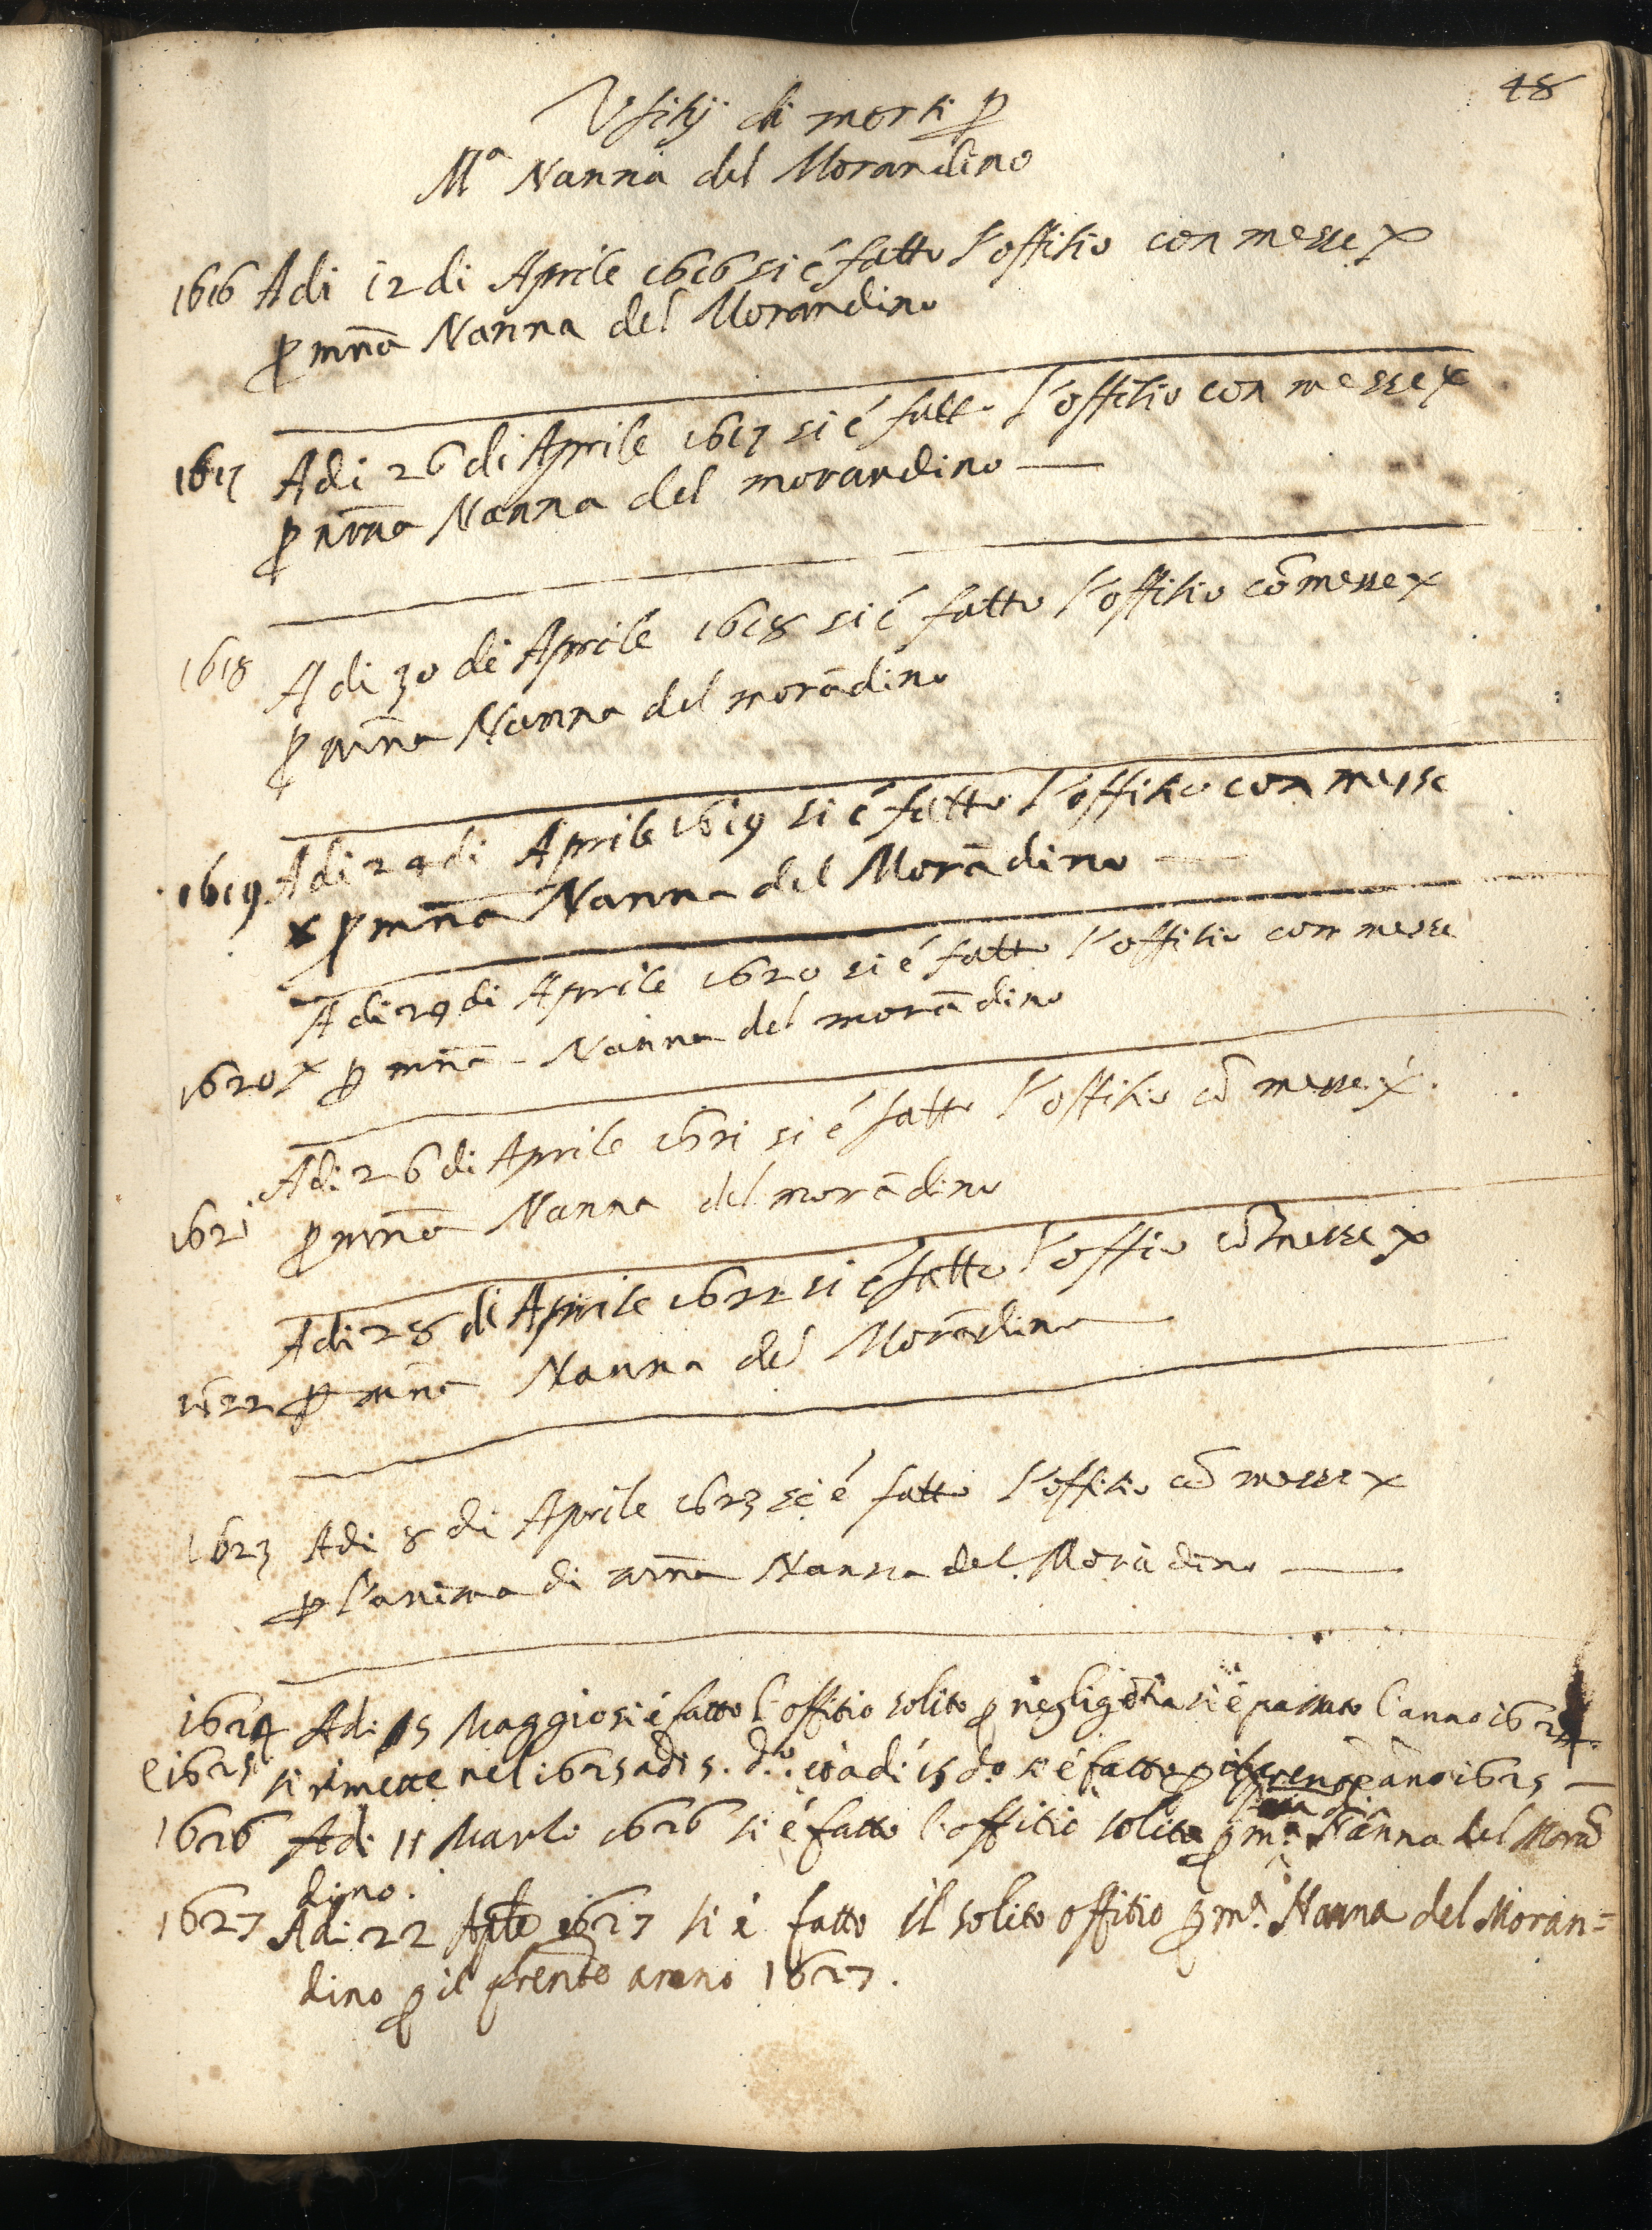 48
Vfitij di morti p
Mª Nanna del Morandino
1616 Adi 12 di Aprile 1616 si é fatto l'offitio con messe x
p mña Nanna del Morandino
1617 Adi 26 di Aprile 1617 si é fatto l'offitio con messe x
p mña Nanna del morandino —
1618 Adi 30 di Aprile 1618 si é fatto l'offitio cō messe x
p mña Nanna del morādino
1619. Adi 24 di Aprile 1619 si é fatto l'offitio con messe
x p mña Nanna del Morādino —
Adi 29 di Aprile 1620 si é fatto l'offitio con messe
1620 x p mña Nanna del morādino
Adi 26 di Aprile 1621 si é fatto l'offitio cō messe x.
1621 p mña Nanna del morādino
Adi 28 di Aprile 1622 si é fatto l'offio cō messe x
1622 p mña Nanna del Morādino —
1623 Adi 8 di Aprile 1623 si é fatto l'offitio cō messe x
p l'anima di mña Nanna del Morādino —
1624 Adi 15 Maggio si é fatto l'offitio solito p negligētia si é passato l'anno 1624.
e 1625 si rimette nel 1625 adi 5. d.º et adi 15 d.º si é fatto p il āno 1625 —
1626 Adi 11 Marzo 1626 si é fatto l'offitio solito p mª. Nanna del Morā
dino.
1627 Adi 22 Aple 1627 si é fatto il solito offitio p mª. Nanna del Moran=
dino p il pñte anno 1627.